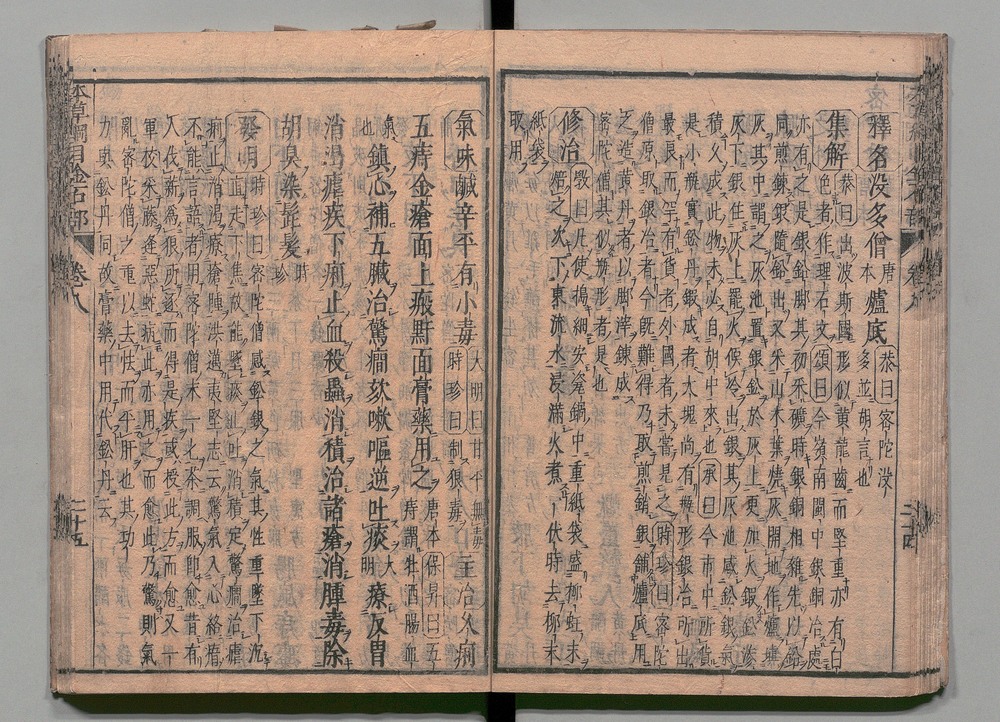 釋名没多僧唐本爐底恭曰密陀没多並胡言也
集解恭曰出波斯國形似黄龍齒而堅重亦有白
色者作理石文頌曰今嶺南閩中銀銅冶處
亦有之是銀鉛脚其初采礦時銀銅相雜先以鉛
同煎鍊銀隨鉛出又采山木葉燒灰開地作爐塡
灰其中謂之灰池置銀鉛於灰上更加火鍛鉛滲
灰下銀住灰上罷火候冷出銀其灰池感鉛銀氣
積久成此物未必自胡中來也承曰今市中所貨
是小瓶實鉛丹鍛成者大塊尚有瓶形銀冶所出
最良而罕有貨者外國者未嘗見之時珍曰密陀
僧原取銀冶者今既難得乃取煎銷銀鋪爐底用
之造黄丹者以脚滓鍊成
密陀僧其似瓶形者是也
修治斆曰凡使搗細安瓷鍋中重紙袋盛柳蛀末
焙之次下東流水浸滿火煮一伏時去柳末
紙袋
取用
氣味鹹辛平有小毒大明曰甘平無毒時珍曰制狼毒主治久痢
五痔金瘡面上瘢䵟面膏藥用之唐本保昇曰五痔謂牡酒腸血
氣也鎮心補五臟治驚癇欬嗽嘔逆吐痰大明療反胃
消渴瘧疾下痢止血殺蟲消積治諸瘡消腫毒除
胡臭染髭髮時珍
發明時珍曰密陀僧感鉛銀之氣其性重墜下沉
直走下焦故能墜痰止吐消積定驚癇治瘧
痢止消渴療瘡腫洪邁夷堅志云驚氣入心絡瘖
不能言語者用密陀僧末一匕茶調服即愈昔有
人伐薪爲狼所逐而得是疾或授此方而愈又一
軍校采藤逢惡蛇病此亦用之而愈此乃驚則氣
亂密陀僧之重以去怯而平肝也其功
力與鉛丹同故膏藥中用代鉛丹云
本草綱目金石部 卷八 二十五